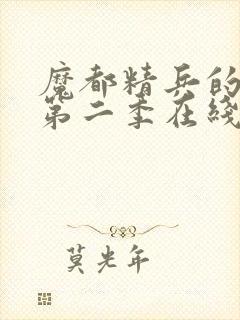 魔都精兵的
第二季在线
莫光年